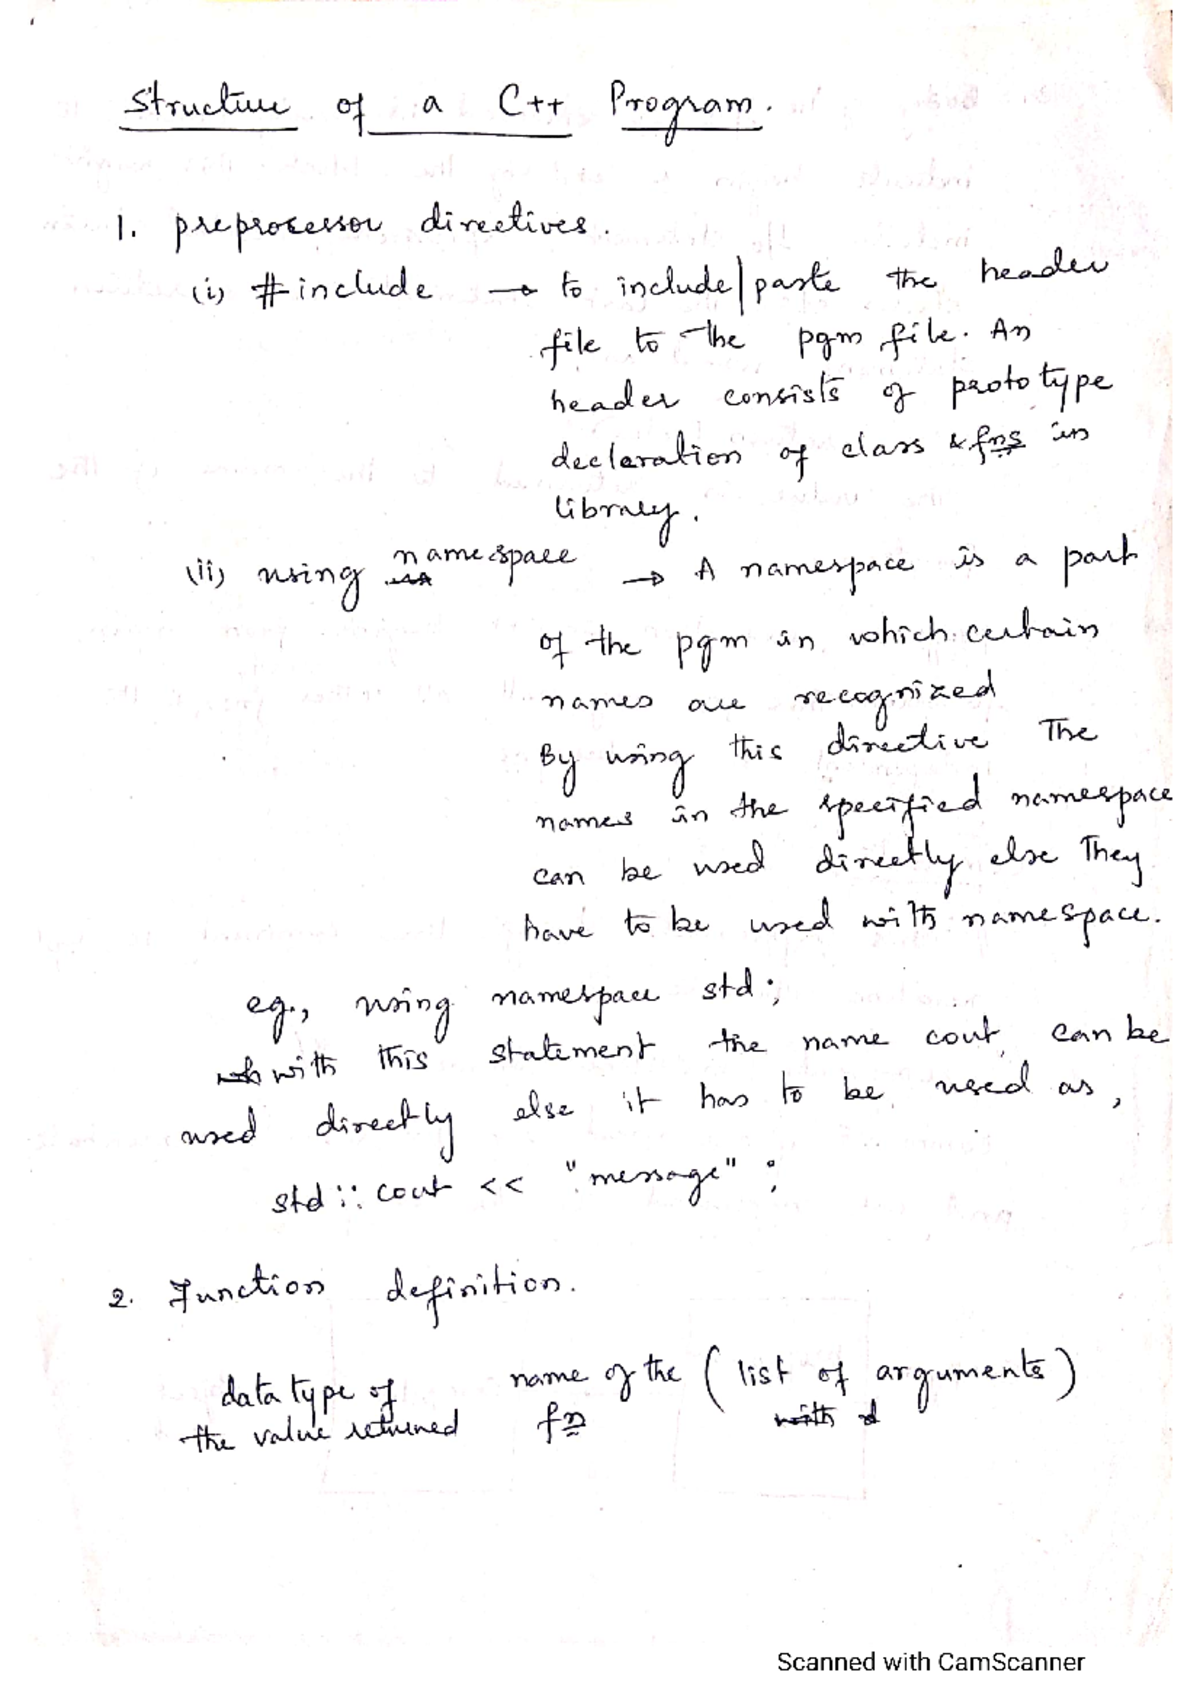 Structure of a C++ Program.
1. preprocessor directives.
(i) #include → to include/paste the header
file to the pgm file. An
header consists of prototype
declaration of class & fns in
library.
(ii) using namespace → A namespace is a part
of the pgm in which certain
names are recognized
By using this directive The
names in the specified namespace
can be used directly else They
have to be used with namespace.
eg., using namespace std;
with this statement the name cout can be
used directly else it has to be used as,
std :: cout << "message" ;
2. Function definition.
data type of name of the ( list of arguments )
the value returned fn
Scanned with CamScanner